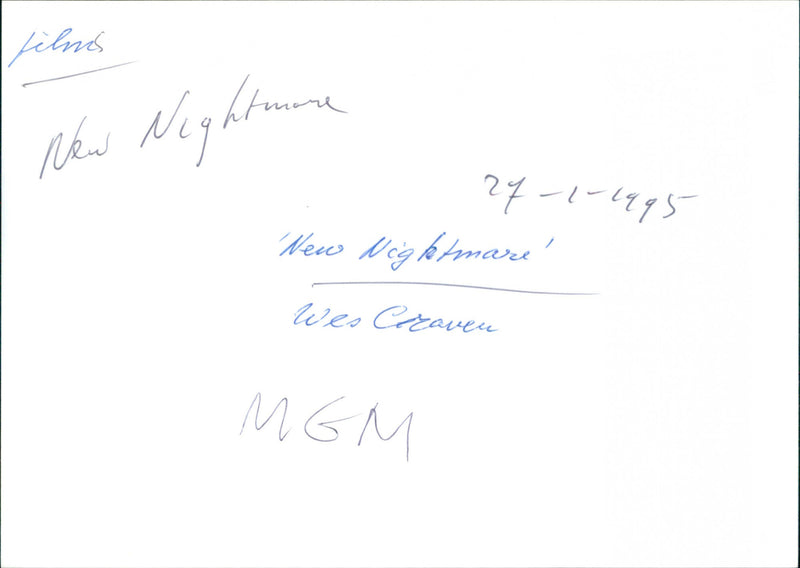 films
New Nightmare
27-1-1995
'New Nightmare'
Wes Craven
MGM